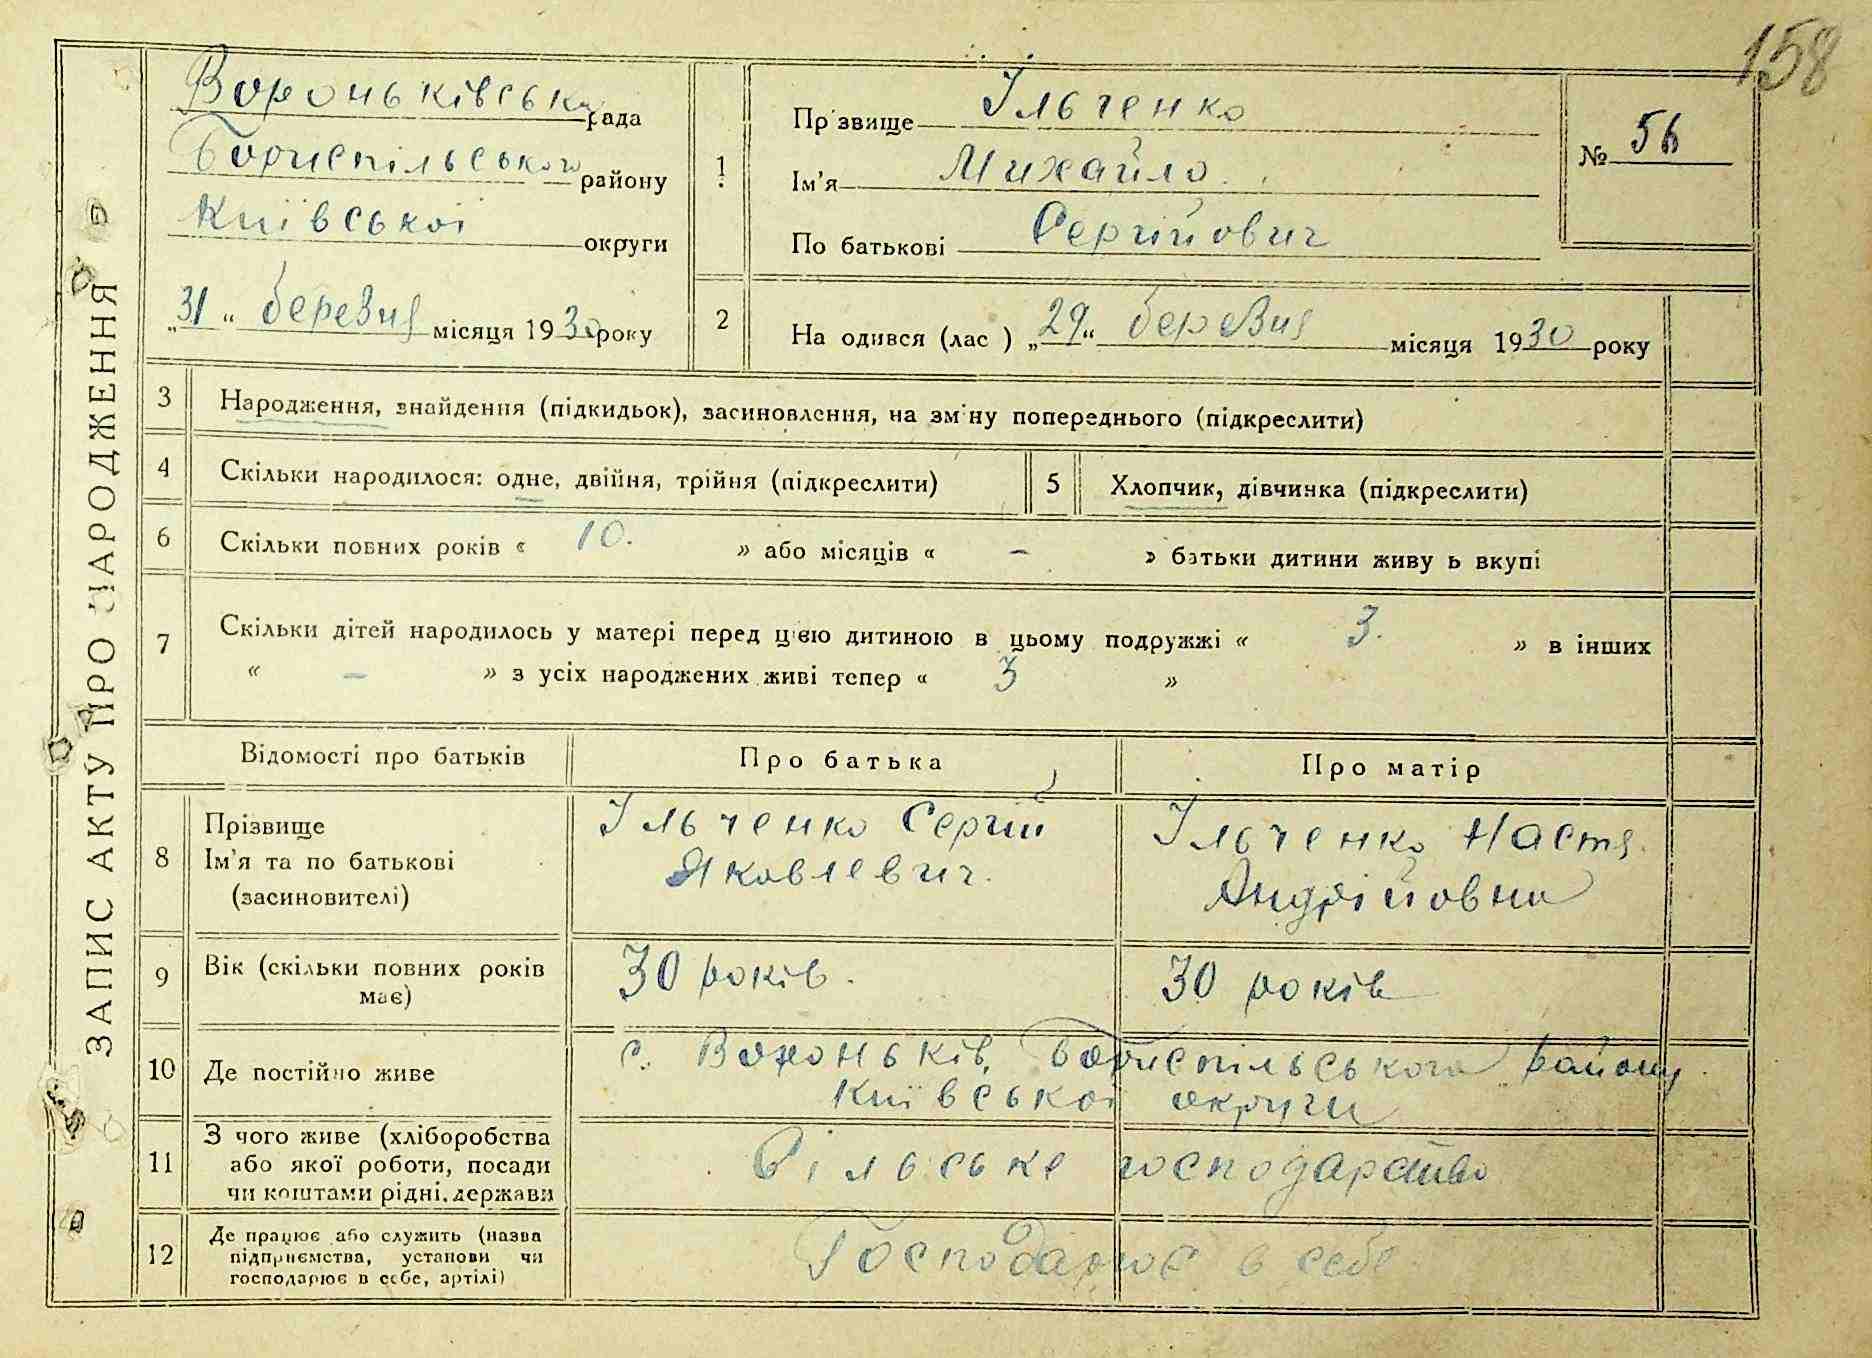 158
ЗАПИС АКТУ ПРО НАРОДЖЕННЯ
Вороньківська рада
Бориспільського району
Київської округи
„31“ березня місяця 1930 року
1. Прізвище Ільченко
Ім'я Михайло
По батькові Сергійович
№ 56
2 На одився (лас ) „29“ березня місяця 1930 року
3 Народження, знайдення (підкидьок), засиновлення, на зміну попереднього (підкреслити)
4 Скільки народилося: одне, двійня, трійня (підкреслити)
5 Хлопчик, дівчинка (підкреслити)
6 Скільки повних років « 10. » або місяців « - » батьки дитини живу ь вкупі
7 Скільки дітей народилось у матері перед цією дитиною в цьому подружжі « 3. » в інших
« - » з усіх народжених живі тепер « 3 »
Відомості про батьків Про батька Про матір
8 Прізвище
Ім'я та по батькові
(засиновителі)
Ільченко Сергій
Яковлевич.
Ільченко Настя
Андрійовна
9 Вік (скільки повних років
має)
30 років.
30 років
10 Де постійно живе
с. Вороньків, Бориспільського району
Київської округи
11 З чого живе (хліборобства
або якої роботи, посади
чи коштами рідні, держави
Сільське господарство
12 Де працює або служить (назва
підприємства, установи чи
господарює в себе, артілі)
Господарює в себе